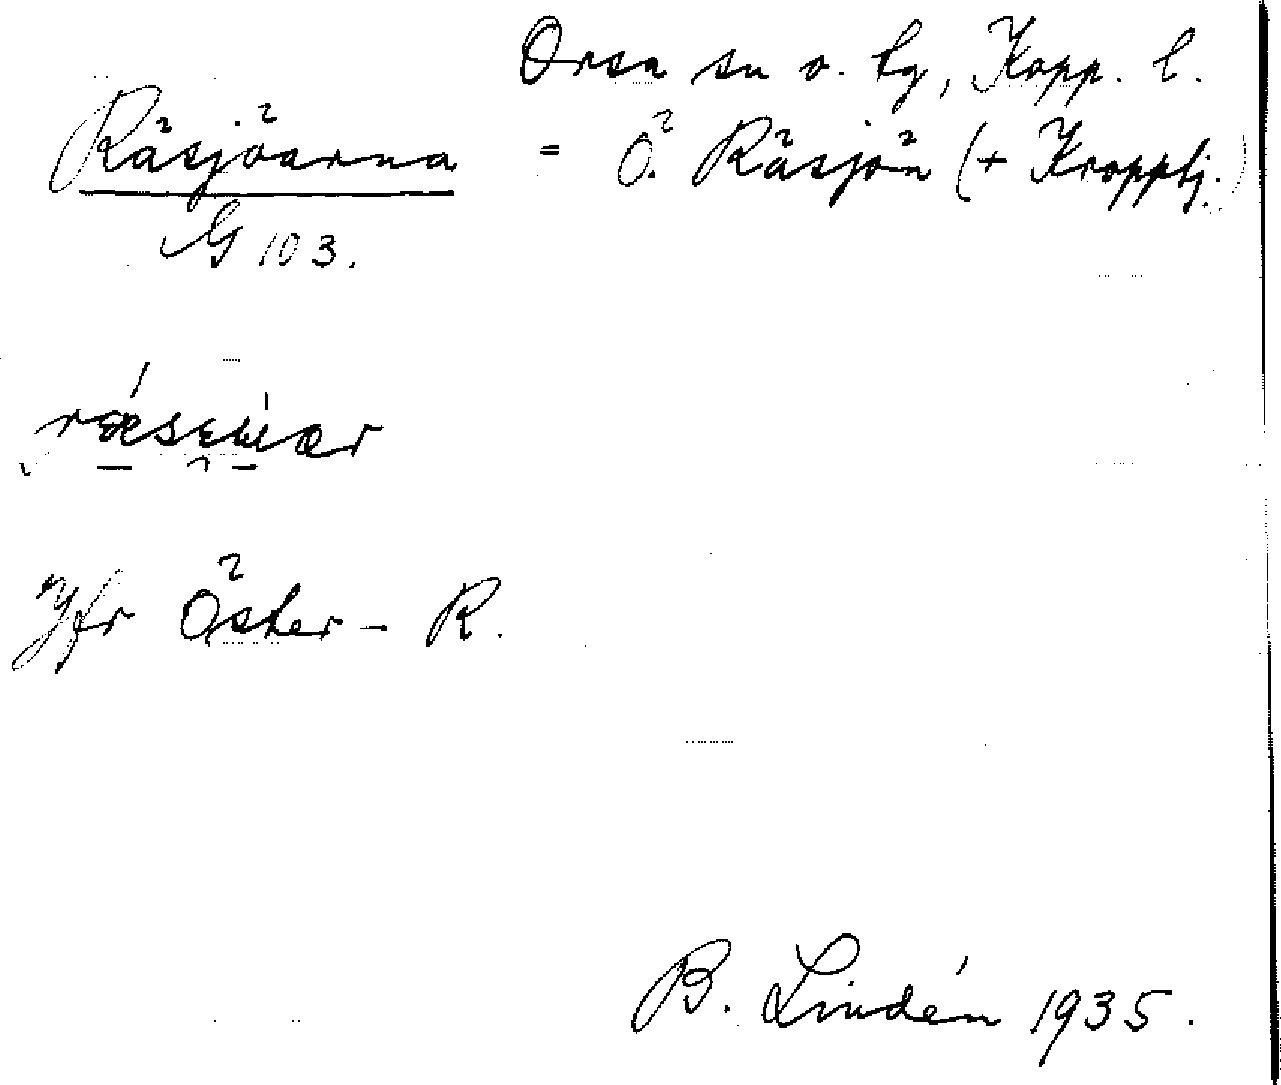 Orsa sn o. tg, Kopp. l.
Räsjöarna = Ö. Räsjön (+ Kropptj.)
G 103.
Jfr Öster-R.
B. Lindén 1935.